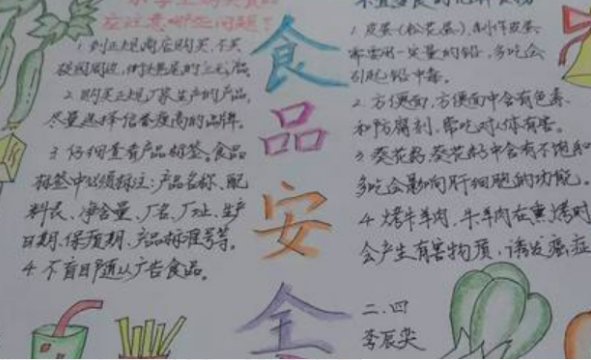 小学生购买食品
应注意哪些问题？
1. 到正规商店购买，不买
校园周边、街头巷尾的"三无"食品。
2. 购买正规厂家生产的产品，
尽量选择信誉度高的品牌。
3. 仔细查看产品标签。食品
标签中必须标注：产品名称、配
料表、净含量、厂名、厂址、生产
日期、保质期、产品标准号等。
4. 不盲目随从广告食品。
食品安全
不宜多食的
1. 皮蛋（松花蛋），制作皮蛋
需要用一定量的铅，多吃会
引起铅中毒。
2. 方便面，方便面中含有色素
和防腐剂，常吃对人体有害。
3. 葵花籽，葵花籽中含有不饱和
多吃会影响肝细胞的功能。
4. 烤牛羊肉，牛羊肉在熏烤时
会产生有害物质，诱发癌症
二.四
李辰奕